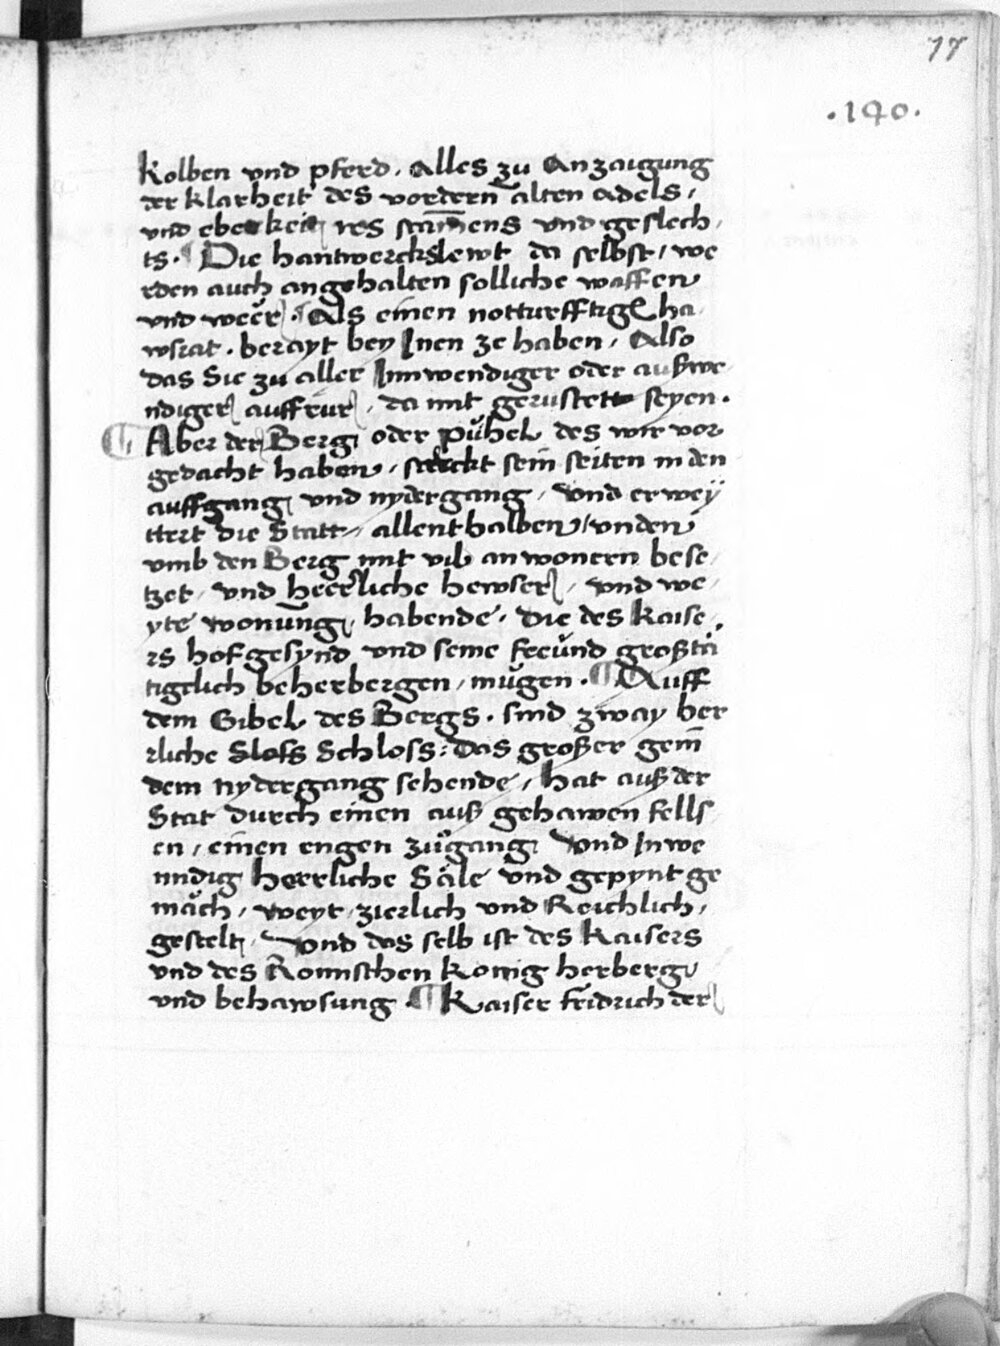 77
.140.
kolben vnd pferd . Alles zu Anzaigung
der klarheit des vordern alten adels /
vnd eberkeit res stam̄ens vnd geslech /
ts . ¶ Die hantwerckslewt da selbst / we
rden auch angehalten solliche waffen
vnd weer . ¶ Als einen notturfftigen ha /
wsrat . berayt bey Inen ze haben / Also
das Sie zu aller Innwendiger oder außwe /
ndiger auffrůr / da mit gerustett seyen .
¶ Aber der Berg oder pühel des wir vor
gedacht haben / streckt sein seiten in den
auffgang vnd nydergang / vnd erweÿ
ttert die Statt / allenthalben / vnden
vmb den Berg mit vil anwonern bese /
tzet / vnd heerliche hewser / vnd we /
yte wonūng habende / die des kaise /
rs hofgesynd vnd seine freünd großtä
tigclich beherbergen / mügen . ¶ Auff
dem Gibel des Bergs . sind zway her
rliche Sloss Schloss : das großer gein̄
dem nydergang sehende / hat auß der
Stat durch einen auß gehawen fells
en / einen engen zůgang vnd Inwe
nndig herrliche Säle vnd gepynt ge
mäch / weyt / zierlich vnd Reichlich /
gestelt / vnd das selb ist des kaisers
vnd des Romischen konig herberg
vnd behawsung . ¶ kaiser fridrich der